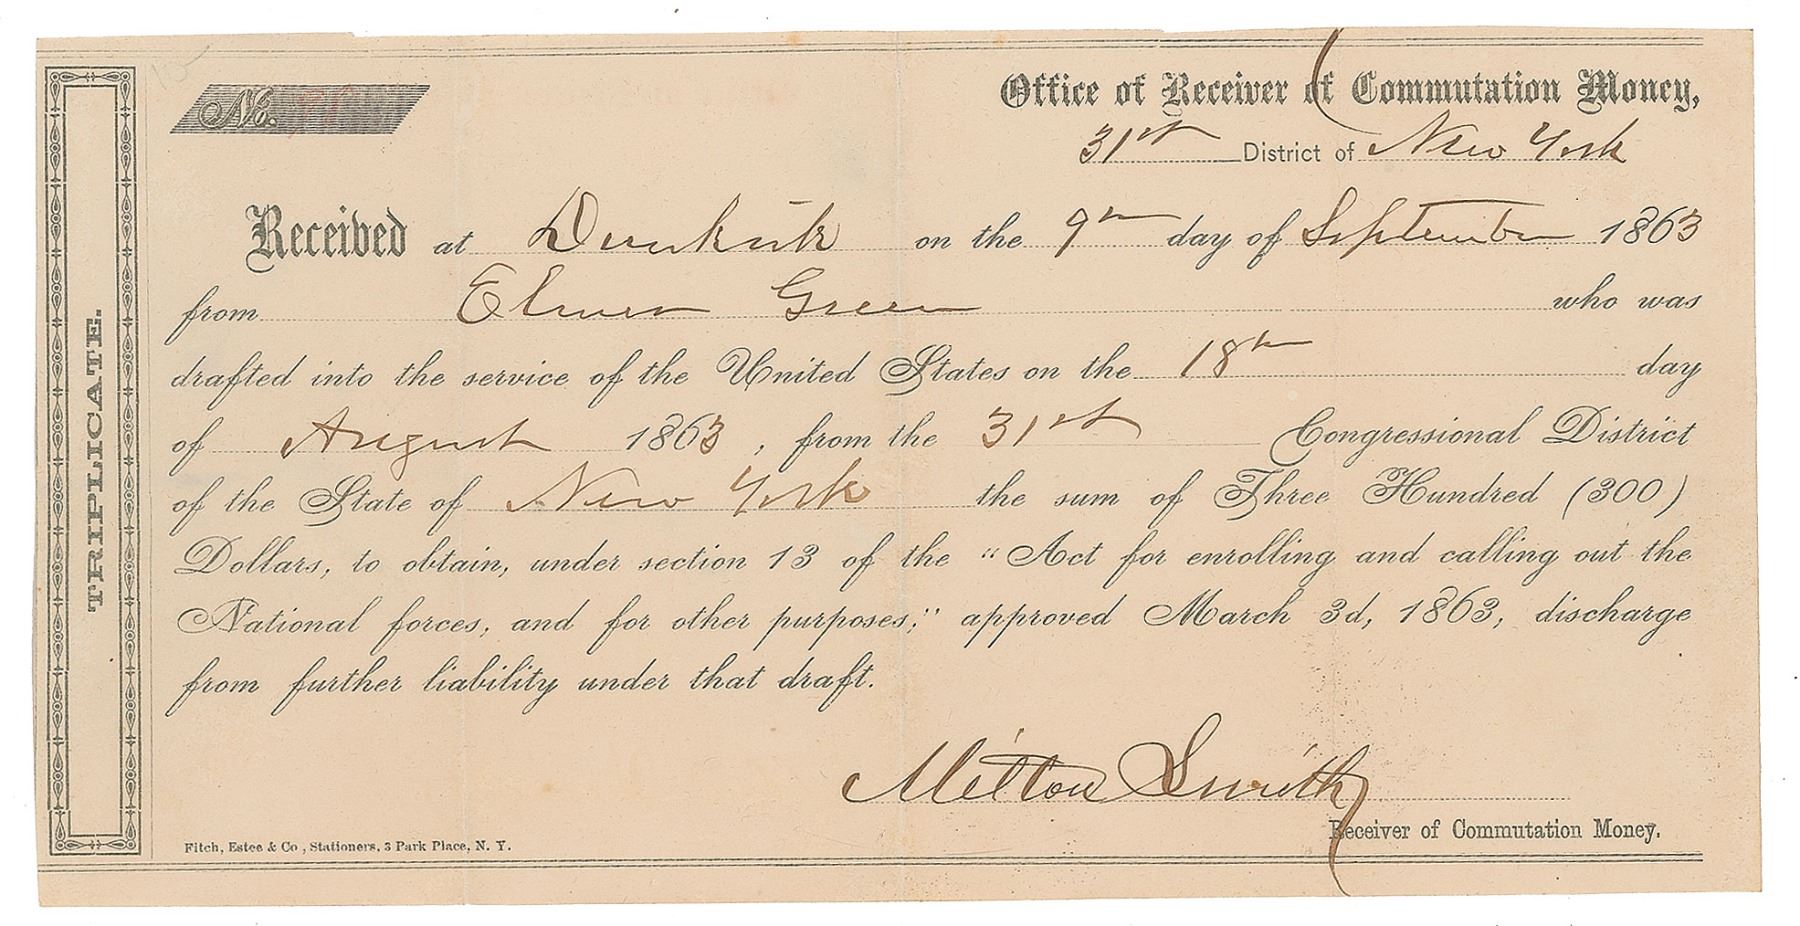 No.
Office of Receiver of Commutation Money,
31st District of New York
Received at Dunkirk on the 9th day of September 1863
from Elmer Green who was
drafted into the service of the United States on the 18th day
of August 1863, from the 31st Congressional District
of the State of New York the sum of Three Hundred (300)
Dollars, to obtain, under section 13 of the "Act for enrolling and calling out the
National forces, and for other purposes;" approved March 3d, 1863, discharge
from further liability under that draft.
Milton Smith
Receiver of Commutation Money.
Fitch, Estee & Co, Stationers, 3 Park Place, N. Y.
TRIPLICATE.